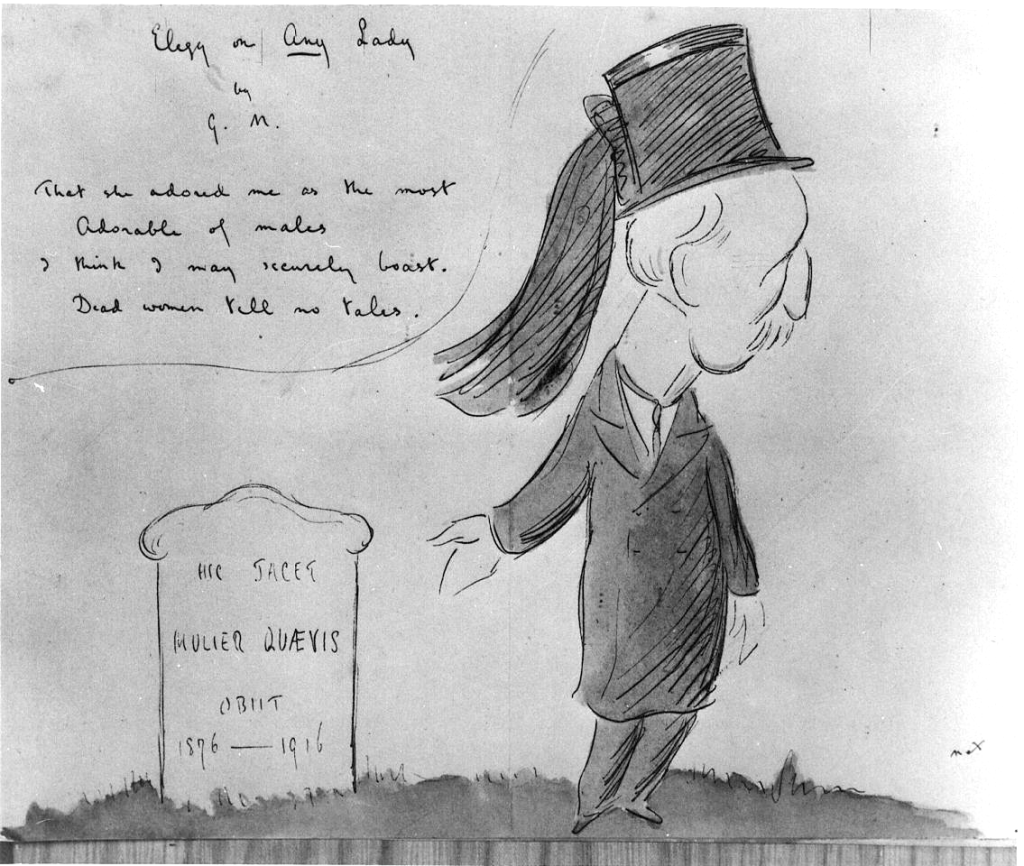 Elegy on Any Lady
by
G. M.
That she adored me as the most
Adorable of males
I think I may securely boast.
Dead women tell no tales.
HIC JACET
MULIER QUÆVIS
OBIIT
1876 — 1916
max